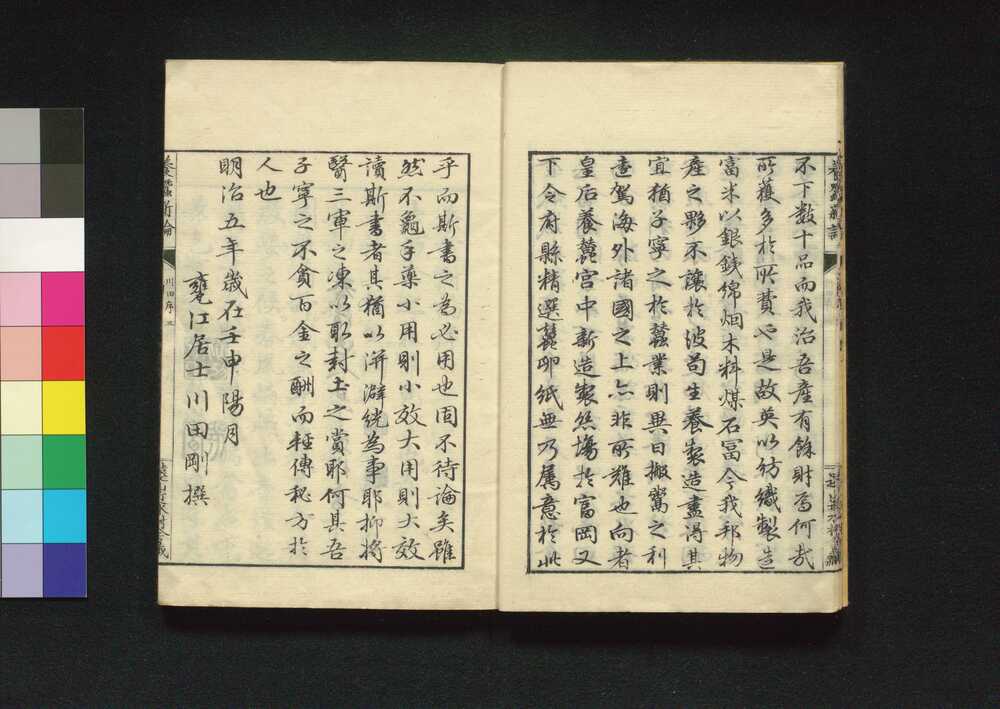 不下数十品而我治吾產有餘財焉何哉
所獲多於所費也是故英以紡織製造
富米以銀銕綿烟木料煤石冨今我邦物
產之夥不讓於彼苟生養製造盡得其
宜猶子寧之於蠶業則異日搬鬻之利
遠駕海外諸國之上亦非所難也向者
皇后養蠶宮中新造製絲場於富岡又
下令府縣精選蠶卵紙無乃属意於此
乎而斯書之為必用也固不待論矣雖
然不龜手藥小用則小效大用則大效
讀斯書者其猶以洴澼絖為事耶抑将
醫三軍之凍以取封土之賞耶何其吾
子寧之不貪百金之酬而輕傳秘方於
人也
明治五年歳在壬申陽月
甕江居士川田剛撰
養蠶新論
川田序 三